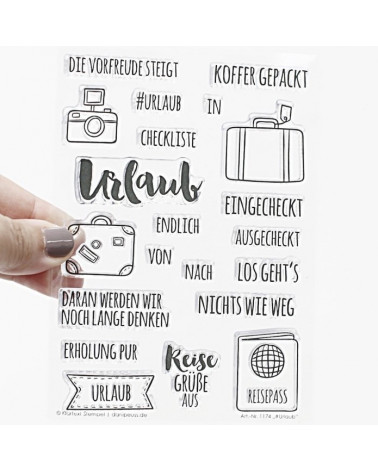 DIE VORFREUDE STEIGT
KOFFER GEPACKT
#URLAUB
IN
CHECKLISTE
Urlaub
EINGECHECKT
ENDLICH
AUSGECHECKT
VON
NACH
LOS GEHT'S
DARAN WERDEN WIR
NOCH LANGE DENKEN
NICHTS WIE WEG
ERHOLUNG PUR
Reise
GRÜßE
AUS
URLAUB
REISEPASS
Art.-Nr. 1174 „#Urlaub"